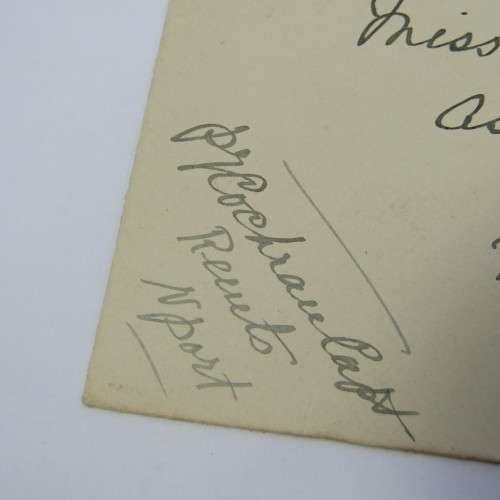 Miss
As
P Y Cochran Capt
Remts
N Port